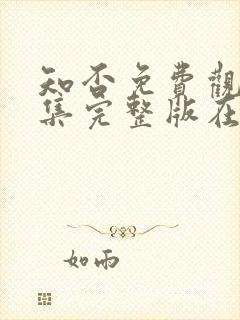 知否免費觀
集完整版在
如雨